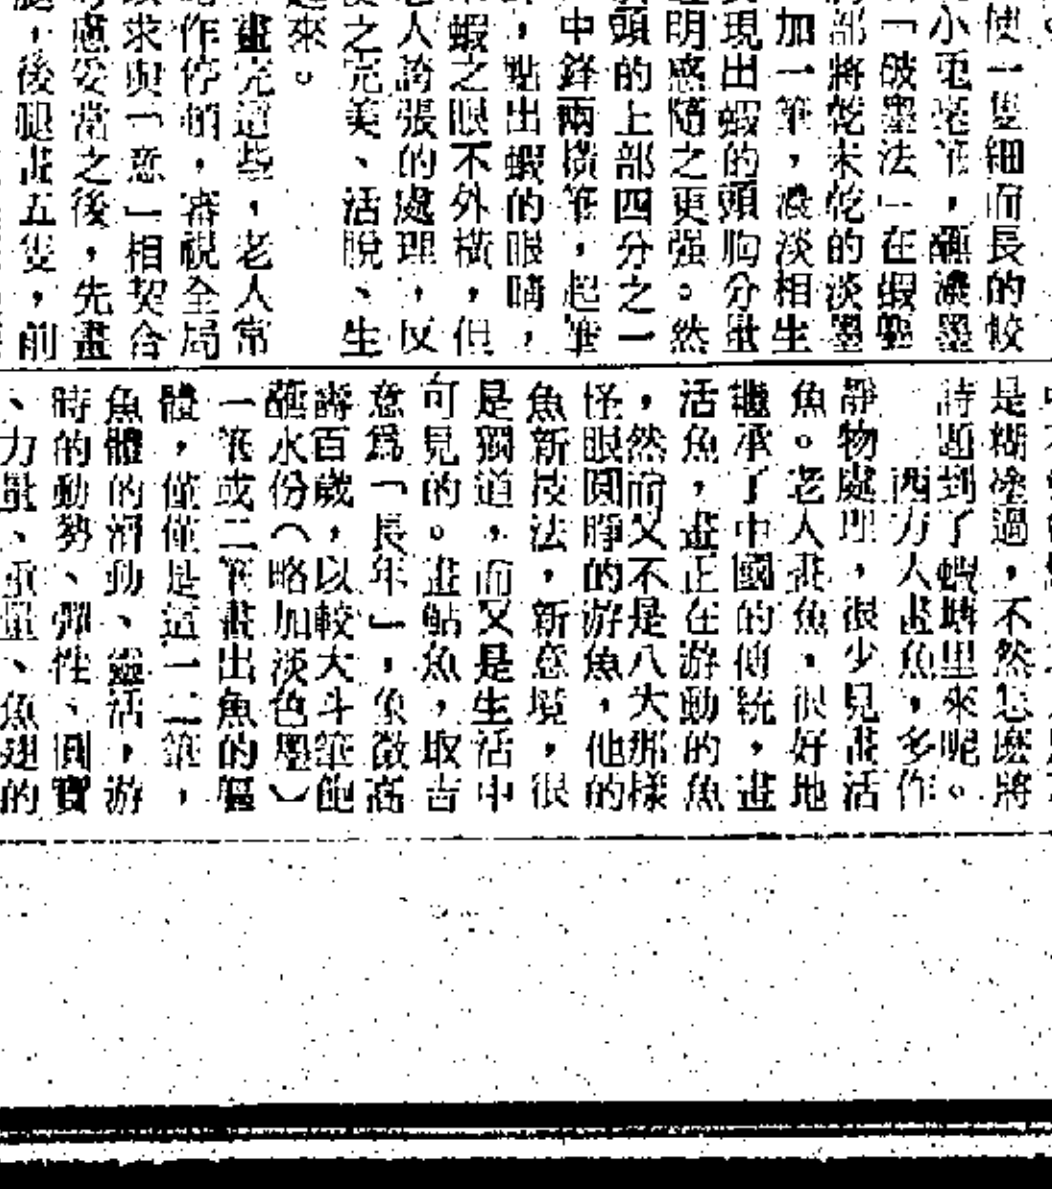 使一隻細而長的狡
小𣬛毫筆，蘸濃墨
「破墨法」在蝦殼
部將乾未乾的淡墨
加一筆，濃淡相生
現出蝦的頭胸分量
明惑隨之更强。然
頭的上部四分之一
中鋒兩橫筆，起筆
，點出蝦的眼睛，
蝦之眼不外橫，但
人誇張的處理，反
之完美、活脫、生
來。
畫完這些，老人常
作停頓，審視全局
求與「意」相契合
慮妥當之後，先畫
，後腿畫五隻，前
是糊塗過，不然怎麽將
詩題到了蝦塘里來呢。
西方人畫魚，多作
靜物處理，很少見畫活
魚。老人畫魚，很好地
繼承了中國的傳統，畫
活魚，畫正在游動的魚
，然而又不是八大那樣
怪眼圓睜的游魚，他的
魚新技法，新意境，很
是獨道，而又是生活中
可見的。畫鮎魚，取吉
意爲「長年」，象徵高
壽百歲，以較大斗筆飽
蘸水份（略加淡色墨）
一筆或二筆畫出魚的軀
體，僅僅是這一二筆，
魚體的滑動、靈活，游
時的動勢、彈性、圓實
、力量、重量、魚翅的